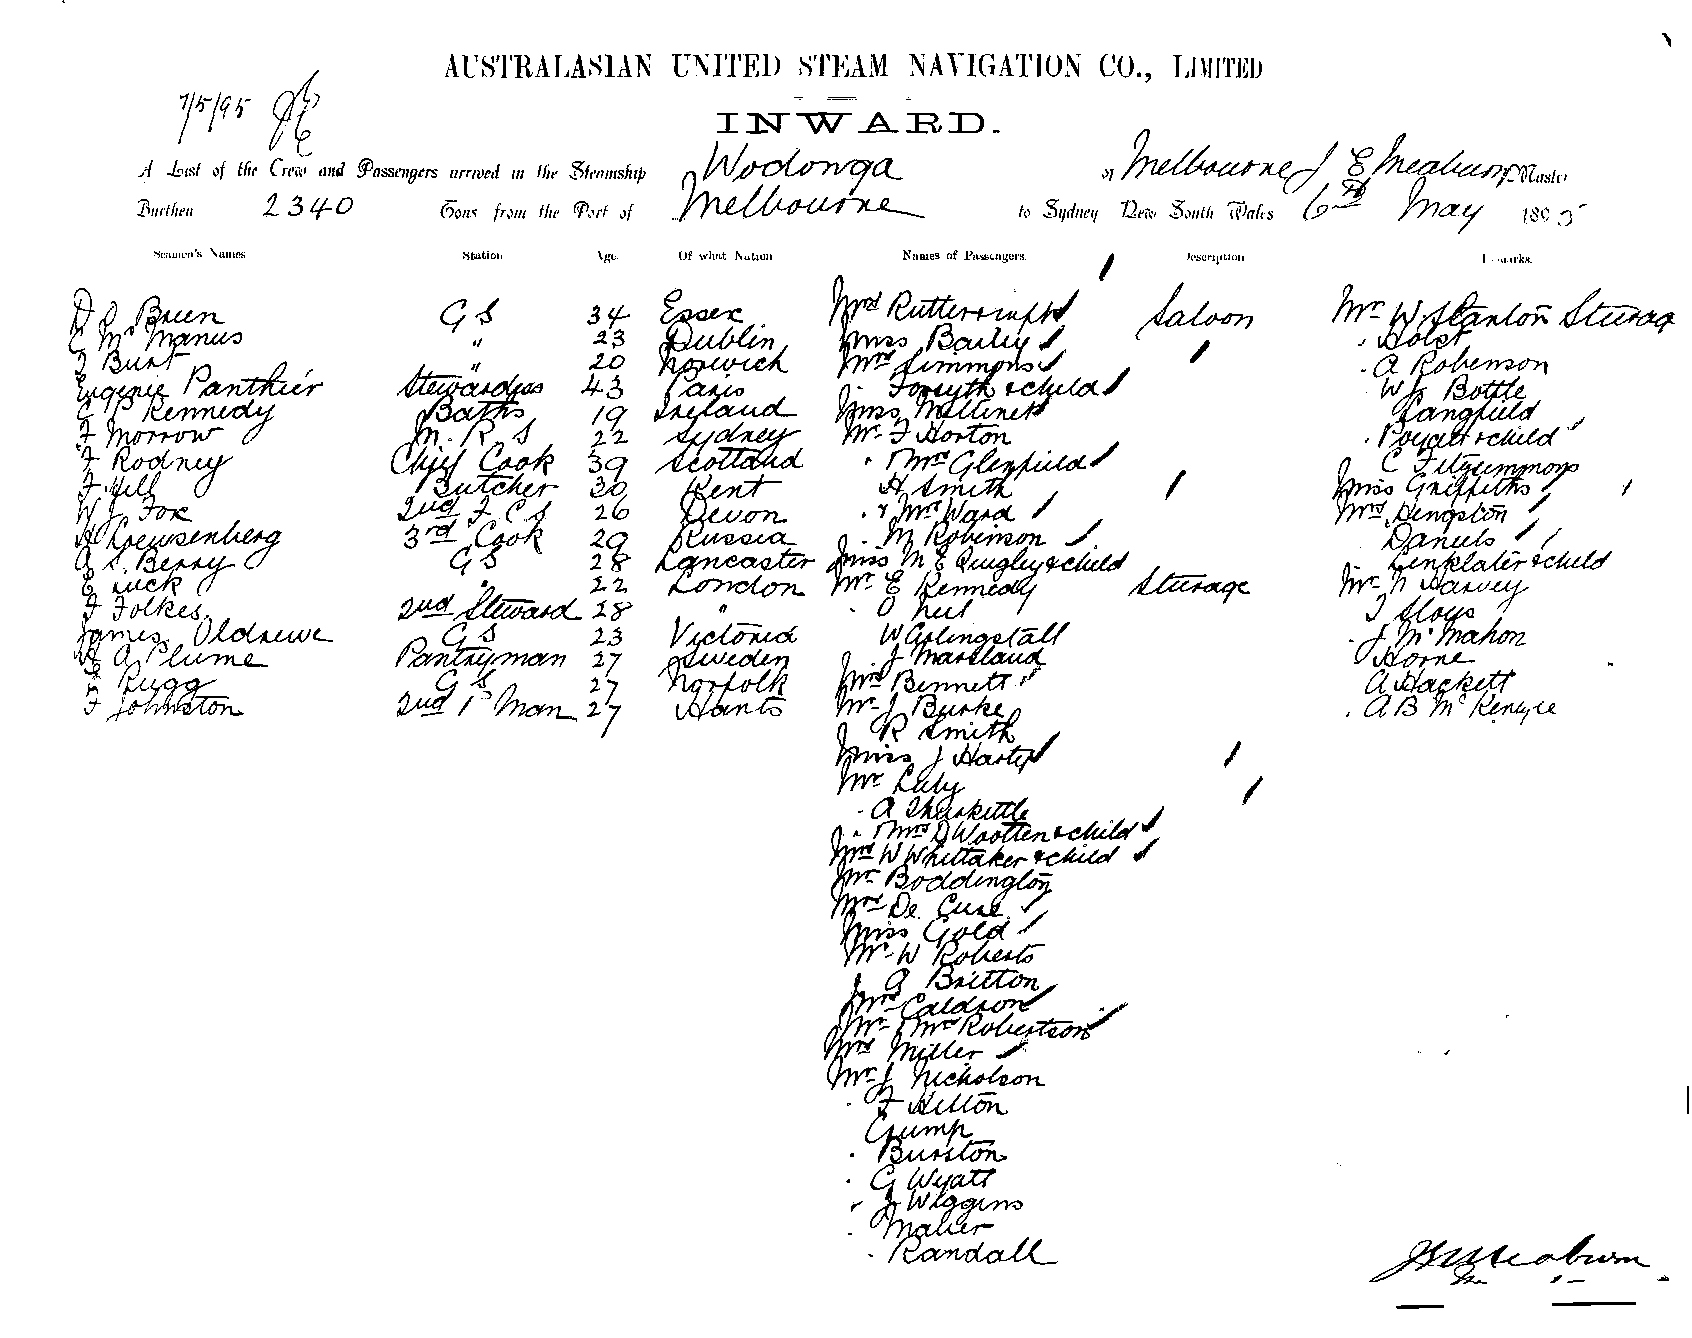 AUSTRALASIAN UNITED STEAM NAVIGATION CO., LIMITED
7/5/95
INWARD.
A List of the Crew and Passengers arrived in the Steamship Wodonga of Melbourne J E Meaburn Master
Burthen 2340 Tons from the Port of Melbourne to Sydney New South Wales 6th May 1895
Seamen's Names Station Age. Of what Nation Names of Passengers. Description Remarks.
Brien G S 34 Essex Mrs Saloon Mr W. Stanton Steerage
Mc Manus " 23 Dublin Miss Baily Holst
Burt " 20 Norwich Mrs Simmons A Robenson
Eugenie Panthier Stewardess 43 Paris Forsyth & child W J Bottle
C P Kennedy Baths 19 Ireland Miss Langfield
F Morrow M. R S 22 Sydney Mr F Horton & child
F Rodney Chief Cook 39 Scotland " & Mrs Glenfield C
F Hill Butcher 30 Kent H Smith Miss Griffiths
W J Fox 2nd F C S 26 Devon " & Mrs Ward Mrs Hengston
3rd Cook 29 Russia M Robinson Daniels
A S. Berry G S 28 Lancaster Miss M E Quigley & child Linklater & child
E Luck " 22 London Mr E Kennedy Steerage Mr N Harvey
F Folkes 2nd Steward 28 " O Neil T Sloys
James Oldrewe G S 23 Victoria W J McMahon
A Plume Pantryman 27 Sweden J Marsland Horne
Rugg G S 27 Norfolk Mrs Bennett A Hackett
F Johnston 2nd P Man 27 Hants Mr J Burke A B
R Smith
Miss J
Mr
A
" & Mrs D Wootten & child
Mrs W Whittaker & child
Mr Boddington
Mrs De Cuse
Miss Gold
Mr W Roberts
A Britton
Mrs
Mr & Mrs Robertson
Mrs Miller
Mr J Nicholson
F Hilton
Crump
" Burston
" G Wyatt
" J Wiggins
" Maher
" Randall
J E Meaburn